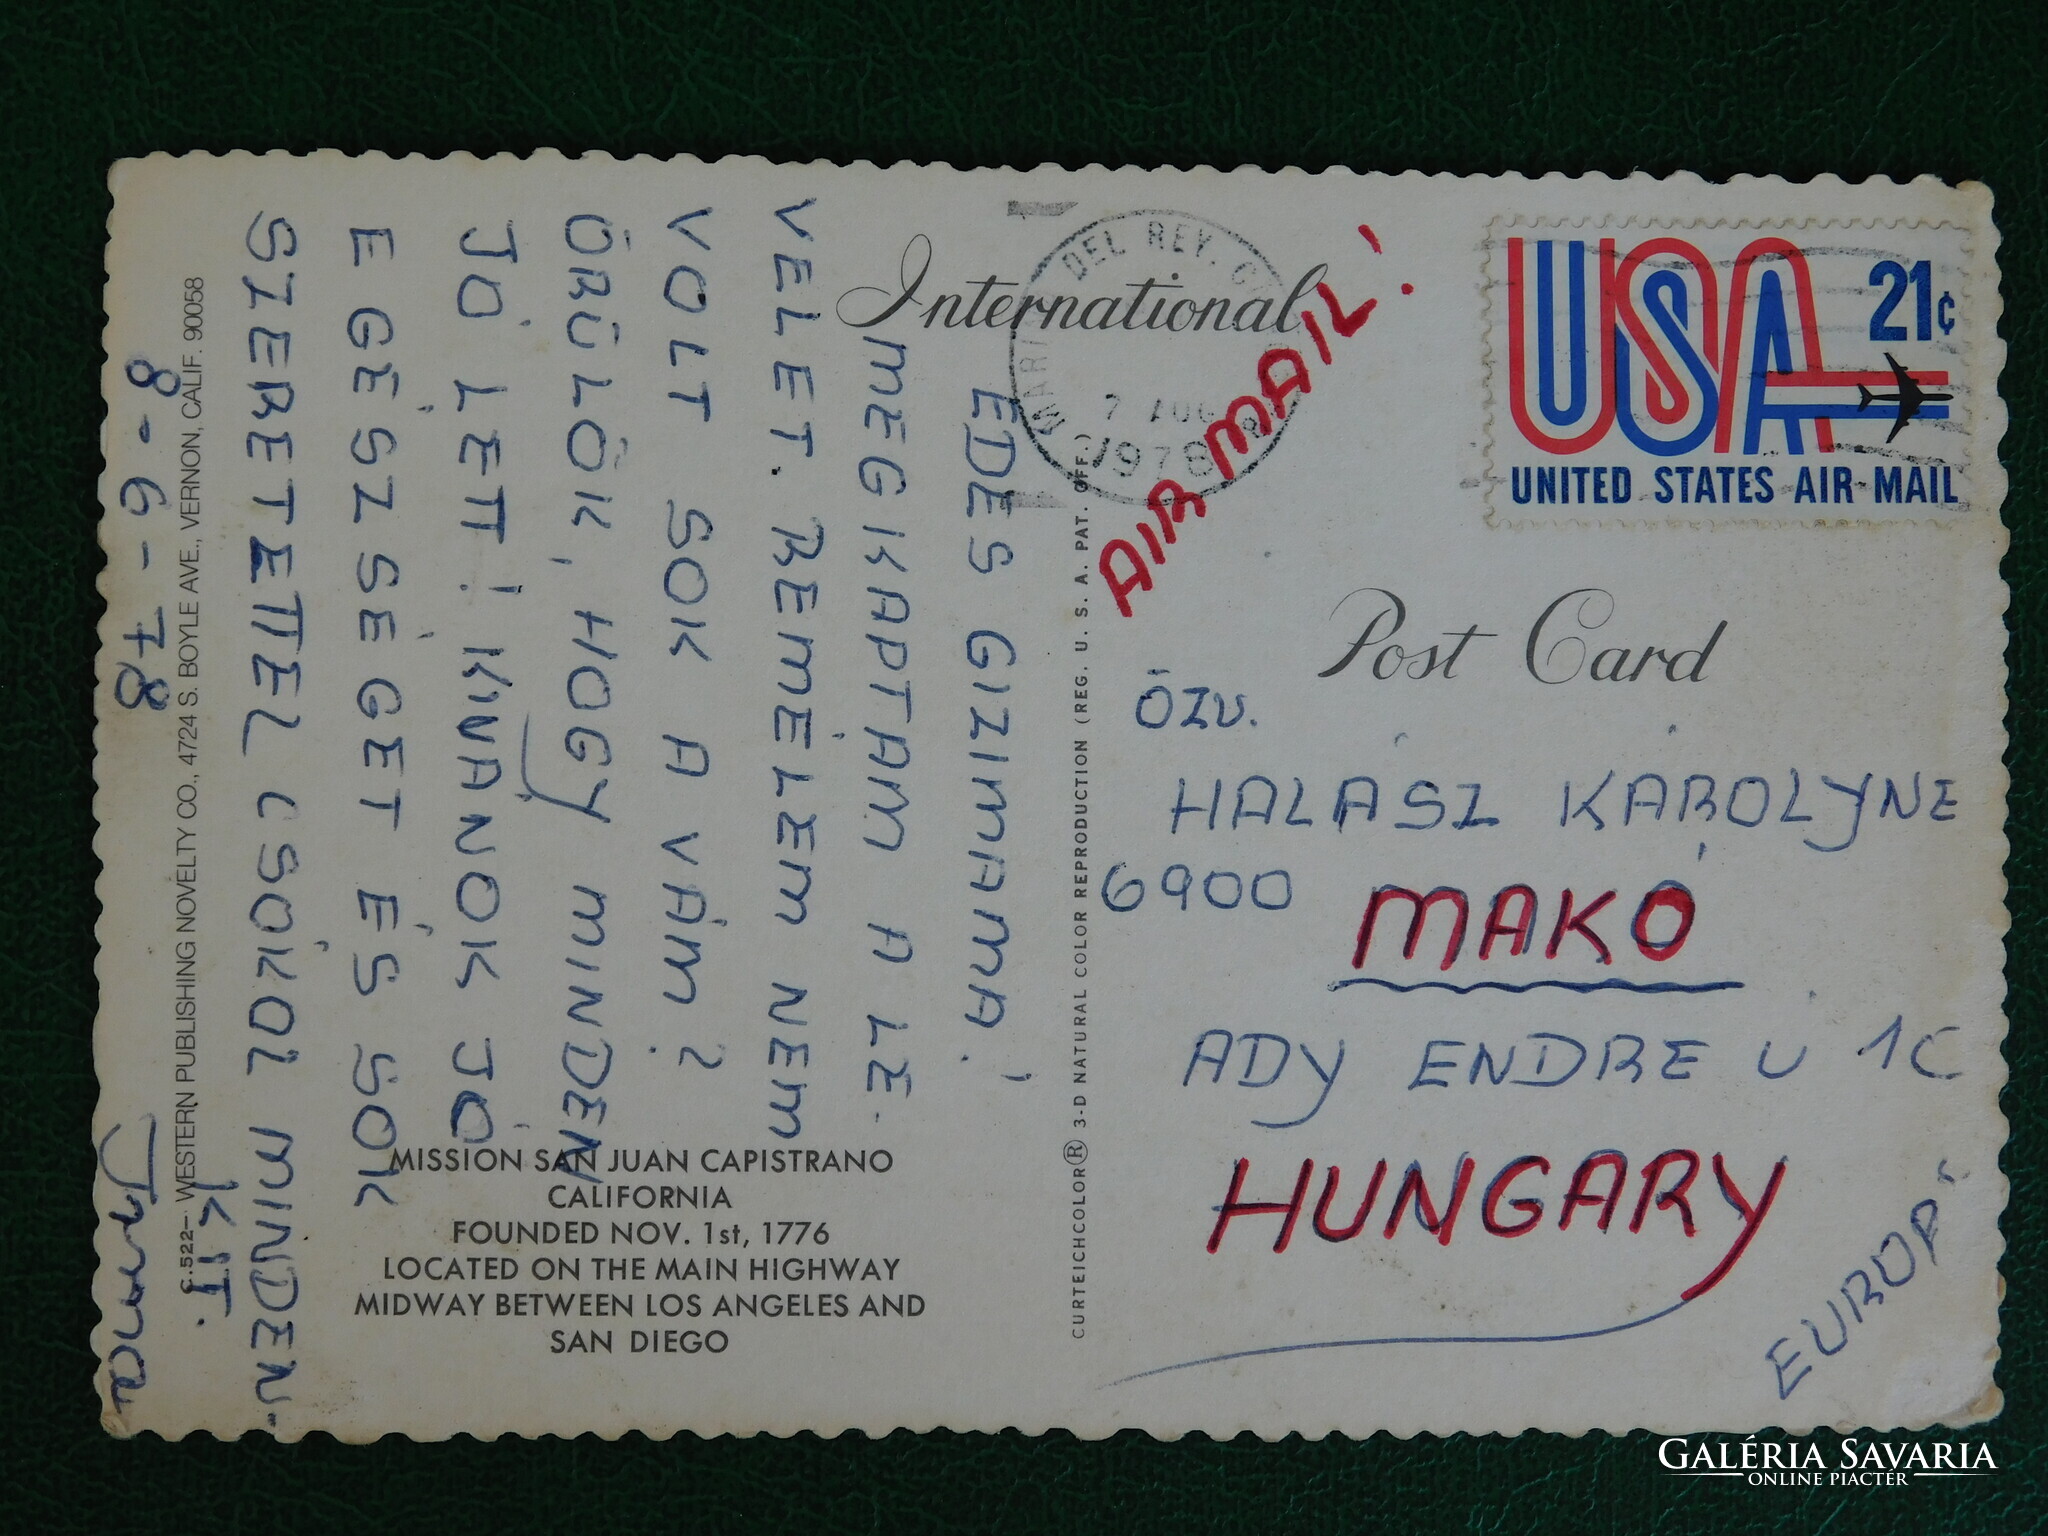 International
AIR MAIL!
MARINA DEL REY, C
7 AUG
1978
USA 21¢
UNITED STATES AIR MAIL
Post Card
ÖZV.
HALÁSZ KÁROLYNE
6900 MAKÓ
ADY ENDRE U 1C
HUNGARY
EUROPA
EDES GIZIMAMA!
MEGKAPTAM A LE-
VELET. REMÉLEM NEM
VOLT SOK A VÁM?
ÖRÜLÖK, HOGY MINDEN
JÓ LETT! KIVANOK JÓ
EGÉSZSÉGET ÉS SOK
SZERETETTEL CSÓKOL MINDEN-
KIT.
8-6-78
MISSION SAN JUAN CAPISTRANO
CALIFORNIA
FOUNDED NOV. 1st, 1776
LOCATED ON THE MAIN HIGHWAY
MIDWAY BETWEEN LOS ANGELES AND
SAN DIEGO
C.522— WESTERN PUBLISHING NOVELTY CO., 4724 S. BOYLE AVE., VERNON, CALIF. 90058
CURTEICHCOLOR® 3-D NATURAL COLOR REPRODUCTION (REG. U. S. A. PAT. OFF.)
GALÉRIA SAVARIA
ONLINE PIACTÉR